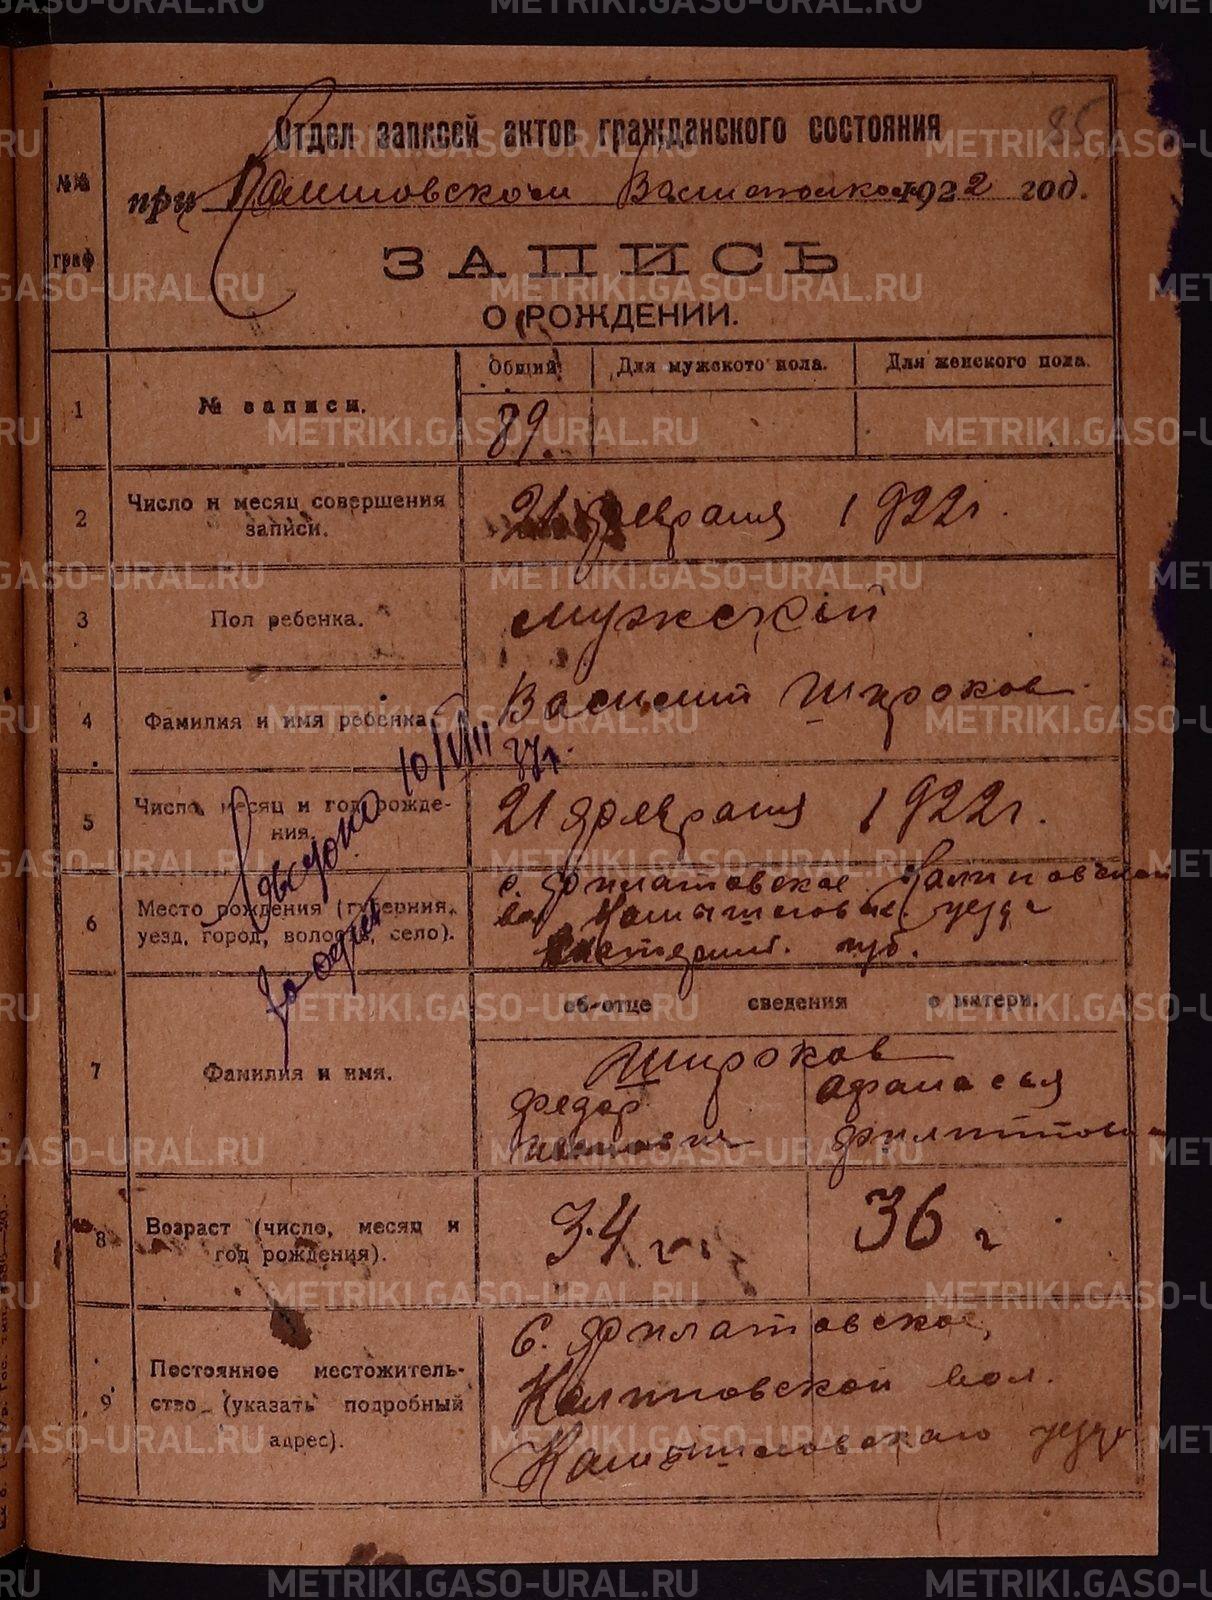 85
Отдел записей актов гражданского состояния
№№ граф
при Калиновском Волисполкоме 1922 год.
ЗАПИСЬ
О РОЖДЕНИИ.
Общий Для мужского пола. Для женского пола.
1 № записи. 89.
2 Число и месяц совершения
записи.
21 февраля 1922 г.
3 Пол ребенка. мужскій
4 Фамилия и имя ребенка. Василий Широков
10/VIII 37г.
5 Число, месяц и год рожде-
ния.
21 февраля 1922 г.
6 Место рождения (губерния,
уезд, город, волость, село).
с. Филатовское Калиновской
вол Камышловск. уезда
Екатерин. губ.
об отце сведения о матери.
7 Фамилия и имя.
Широков
Федор Афанасья
Филиппова
8 Возраст (число, месяц и
год рождения).
34 г. 36 г
9 Постоянное местожитель-
ство (указать подробный
адрес).
С. Филатовское,
Калиновской вол.
Камышловскаго уезда
METRIKI.GASO-URAL.RU